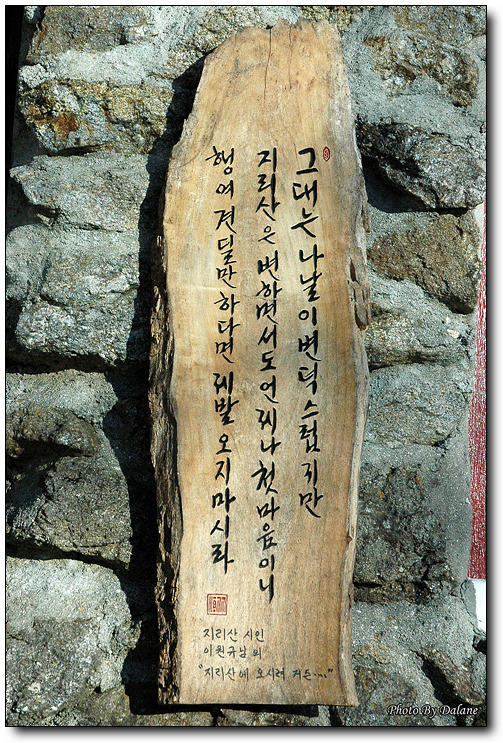 그대는 나날이 변덕스럽지만
지리산은 변하면서도 언제나 첫마음이니
행여 견딜만 하다면 제발 오지마시라
지리산 시인
이원규님의
"지리산에 오시려 거든…"
Photo By Dalane